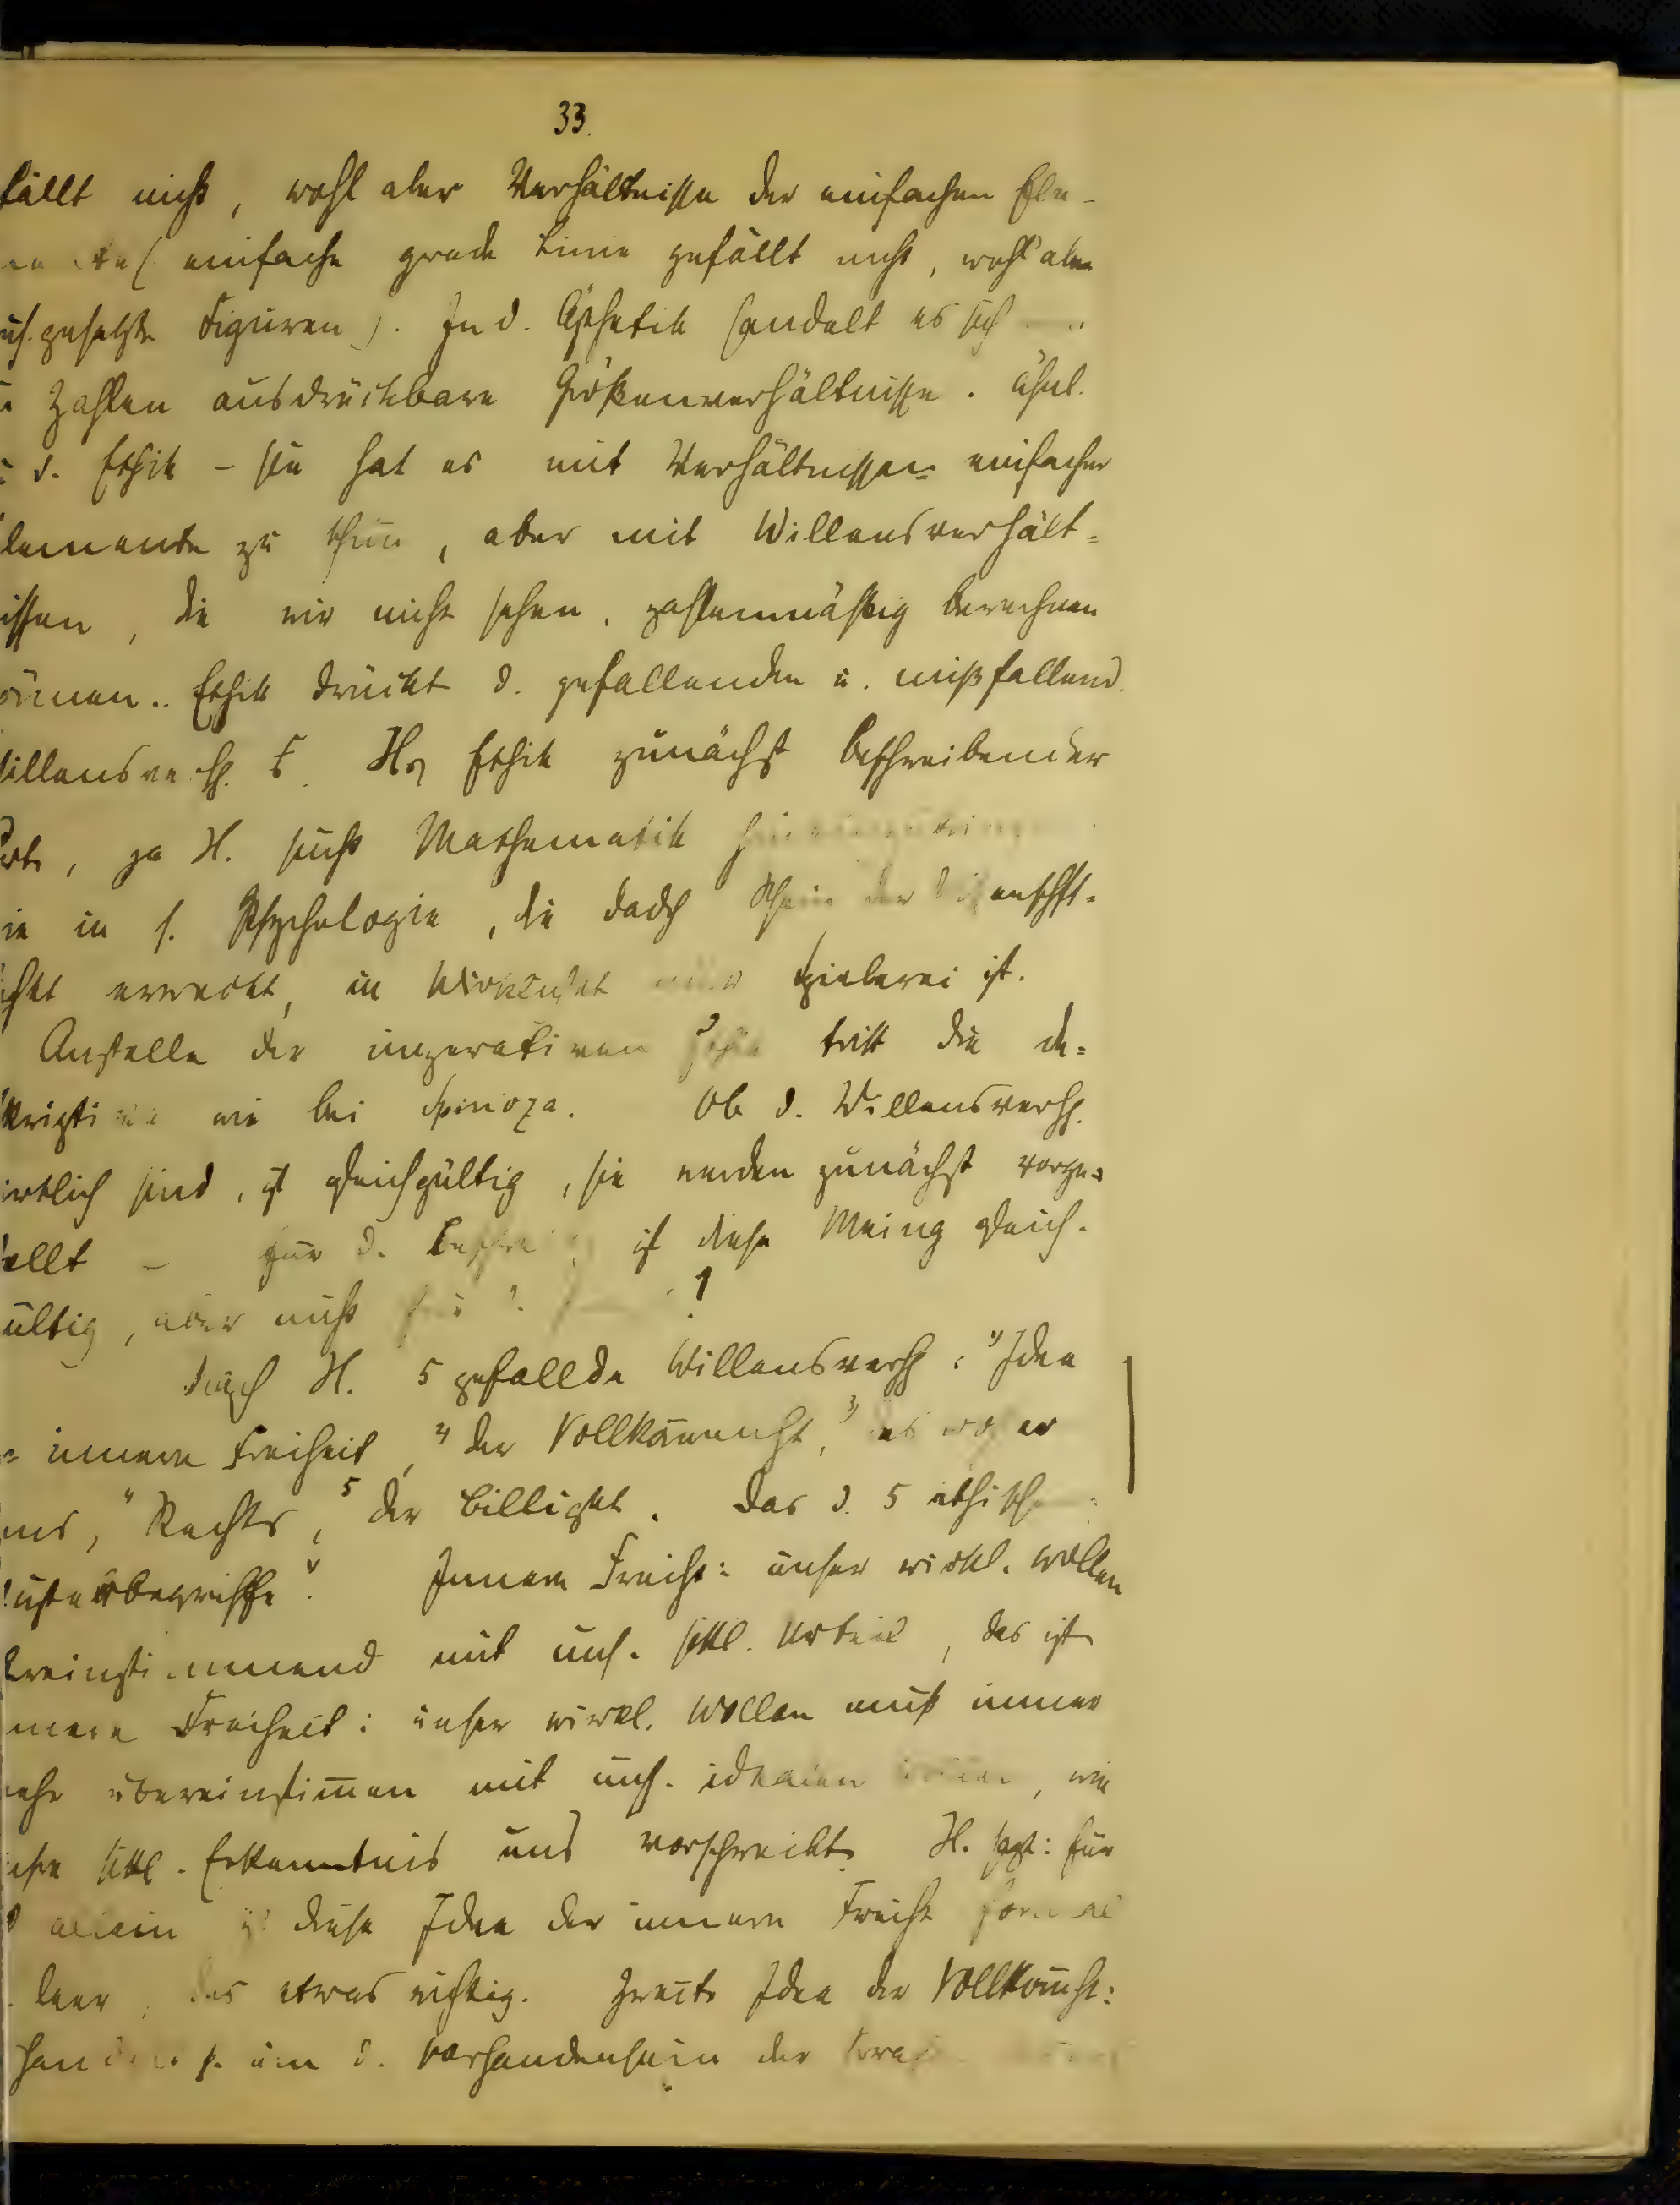 33.
fällt nicht, wohl aber Verhältnisse der einfachen Ele-
(einfache grade Linie gefällt nicht, wohl aber
gesetzte Figuren). In d. Ästhetik handelt es sich
Zahlen ausdrückbare Größenverhältnisse. Ähnl.
d. Ethik – sie hat es mit Verhältnissen einfacher
lemente zu thun, aber mit Willensverhält-
issen, die wir nicht sehen, zahlenmäßig berechnen
önnen.. Ethik drückt d. gefallenden u. mißfallend.
illensverh. Hs Ethik zunächst beschreibender
Art, ja H. sucht Mathematik
ie in s. Psychologie, die dadch Schein der Wissenschft-
chkt erweckt, in Wirklichkt Spielerei ist.
Anstelle der imperativen Ethik tritt die de-
skriptive wie bei Spinoza. Ob d. Willensverh.
irklich sind, ist gleichgültig, sie werden zunächst vorge-
ellt – für d. ist diese Meing gleich-
ültig, aber nicht
H. 5 gefallde Willensverh: 1) Idee
innern Freiheit, 2) der Vollkommenht, 3) des
ens, 4 Rechts, 5 der Billigkt. Das d. 5 ethisch
usterbegriffe". Innere Freiht: unser wirkl. Wollen
bereinstimmend mit uns. sittl. Urteil, das ist
nnere Freiheit: unser wirkl. Wollen muß immer
mehr übereinstimmen mit uns. idealen, wie
nsre sittl. Erkenntnis uns vorschreibt. H. sagt: für
allein ist diese Idee der innern Freiht formal
leer, das etwas richtig. Zweite Idee der Vollkommht:
um d. Vorhandensein der